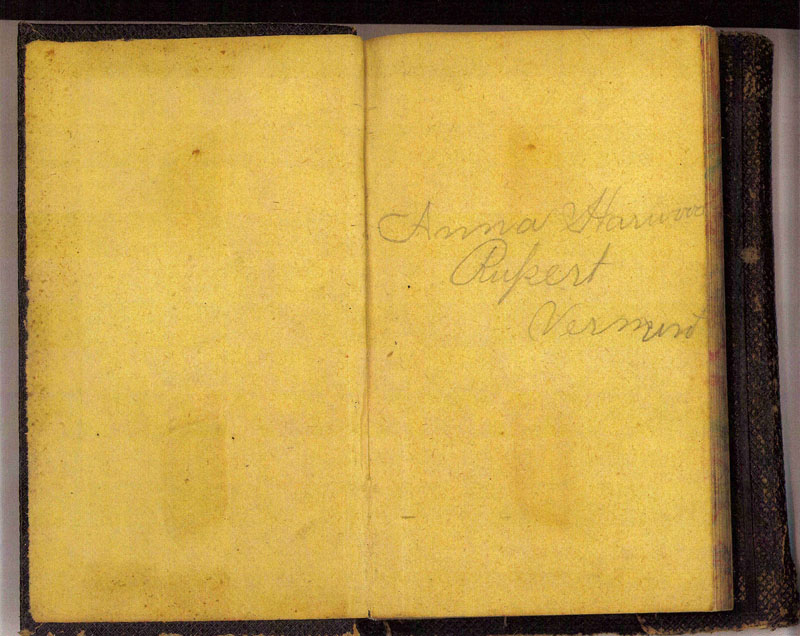 Anna Harwood
Rupert
Vermont